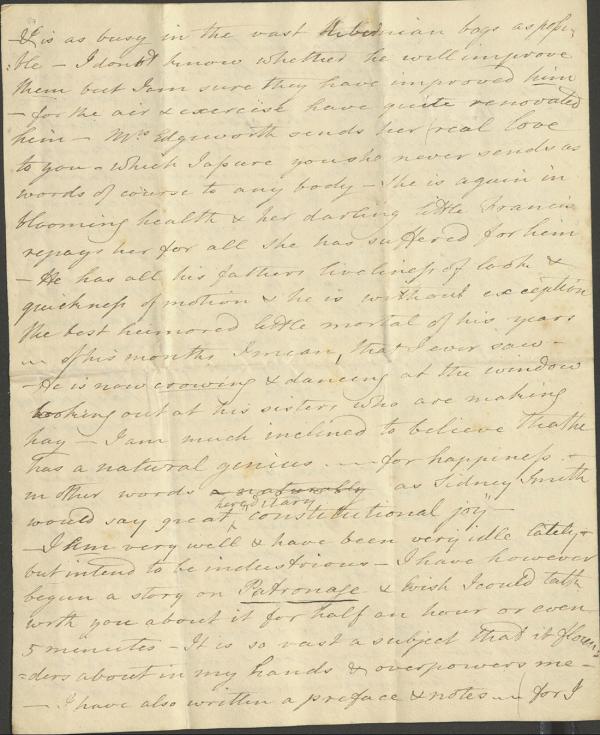 & is as busy in the vast Hibernian bogs as possi
:ble – I don't know whether he will improve
them but I am sure they have improved him
– for the air & exercise have quite renovated
him – Mrs Edgeworth sends her (real love
to you – which I assure you she never sends as
words of course to any body – She is again in
blooming health & her darling little Francis
repays her for all she has suffered for him
– He has all his fathers liveliness of look &
quickness of motion & he is without exception
the best humored little mortal of his years
— of his months I mean, that I ever saw –
– He is now crowing & dancing at the window
looking out at his sisters who are making
hay – I am much inclined to believe that he
has a natural genius — for happiness –
in other words as Sidney Smith
would say great hereditary constitutional joy"–
– I am very well & have been very idle lately &
but intend to be industrious – I have however
begun a story on Patronage & wish I could talk
with you about it for half an hour or even
5 minutes – It is so vast a subject that it floun
=ders about in my hands & overpowers me –
– I have also written a preface & notes — (for I